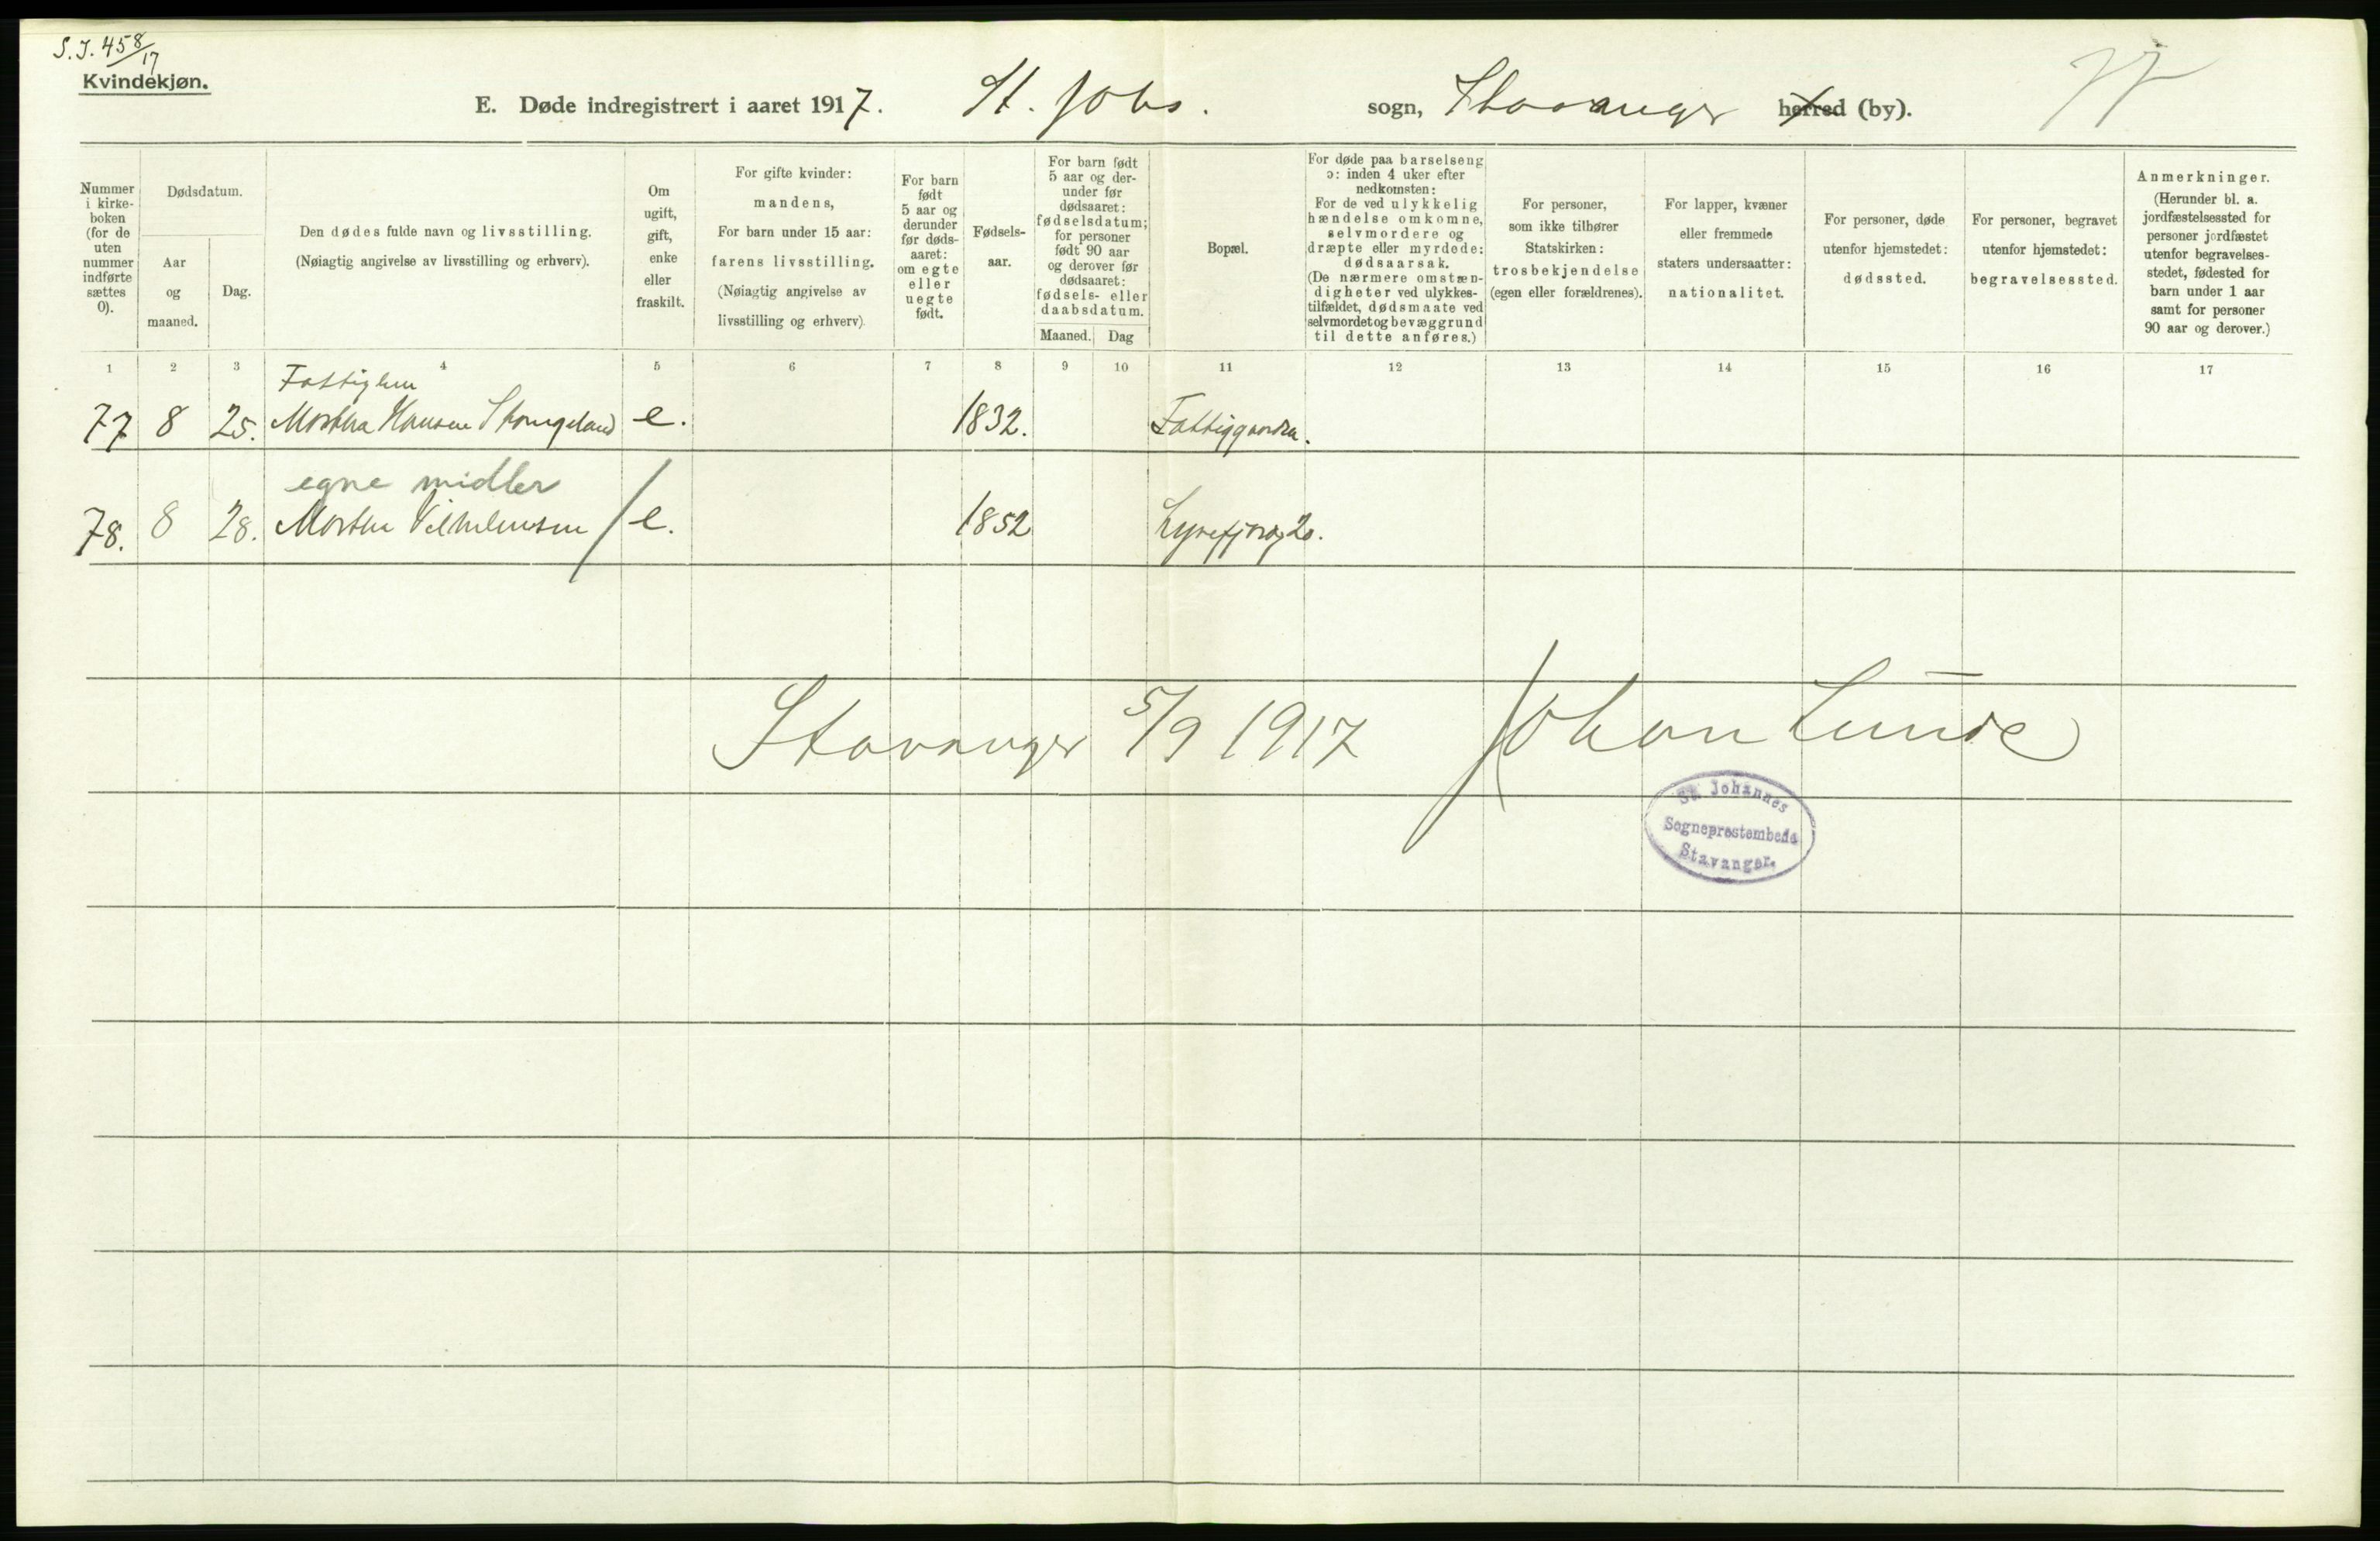 S.J. 458/17
Kvindekjøn.
E. Døde indregistrert i aaret 1917. St. Johs. sogn, Stavanger herred (by).
Nummer i kirke- boken (for de uten nummer indførte sættes 0).
Dødsdatum.
Aar og maaned.
Dag.
Den dødes fulde navn og livsstilling.
(Nøiagtig angivelse av livsstilling og erhverv).
Om ugift, gift, enke eller fraskilt.
For gifte kvinder: mandens,
For barn under 15 aar: farens livsstilling.
(Nøiagtig angivelse av livsstilling og erhverv).
For barn født 5 aar og derunder før døds- aaret: om egte eller uegte født.
Fødsels- aar.
For barn født 5 aar og der- under før dødsaaret: fødselsdatum; for personer født 90 aar og derover før dødsaaret: fødsels- eller daabsdatum.
Maaned. Dag
Bopæl.
For døde paa barselseng ɔ: inden 4 uker efter nedkomsten:
For de ved ulykkelig hændelse omkomne, selvmordere og dræpte eller myrdede: dødsaarsak.
(De nærmere omstæn- digheter ved ulykkes- tilfældet, dødsmaate ved selvmordet og bevæggrund til dette anføres.)
For personer, som ikke tilhører Statskirken: trosbekjendelse (egen eller forældrenes).
For lapper, kvæner eller fremmede staters undersaatter: nationalitet.
For personer, døde utenfor hjemstedet: dødssted.
For personer, begravet utenfor hjemstedet: begravelsessted.
Anmerkninger.
(Herunder bl. a. jordfæstelsessted for personer jordfæstet utenfor begravelses- stedet, fødested for barn under 1 aar samt for personer 90 aar og derover.)
1 2 3 4 5 6 7 8 9 10 11 12 13 14 15 16 17
Fattiglem
77 8 25. Martha Hansen Stangeland e. 1832. Fattiggaarden.
egne midler
78. 8 28. Marthe Vilhelmsen / e. 1852 Lysefjordg 20.
Stavanger 5/9 1917 Johan Lunde
St. Johannes
Sogneprestembede
Stavanger.